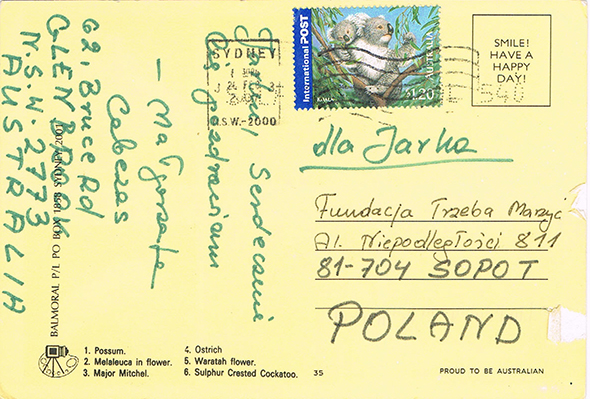 SYDNEY
N.S.W.-2000
International POST
AUSTRALIA
$1.20
SMILE!
HAVE A
HAPPY
DAY!
Serdecznie
Cię pozdrawiam
– Małgorzata
Cabezas
62, Bruce Rd
GLENBROOK
N.S.W. 2773
AUSTRALIA
BALMORAL P/L PO BOX 1858 SYDNEY 2001
dla Jarka
Fundacja Trzeba Marzyć
Al. Niepodległości 811
81-704 SOPOT
POLAND
1. Possum.
2. Melaleuca in flower.
3. Major Mitchel.
4. Ostrich
5. Waratah flower.
6. Sulphur Crested Cockatoo.
35
PROUD TO BE AUSTRALIAN